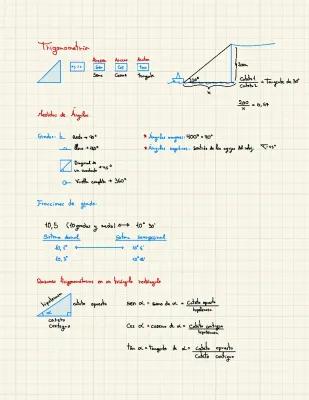 Trigonometría
Seno Coseno Tangente
200m
30°
x
Cateto 1
Cateto 2
= Tangente de 30°
200
x
= 0,57
Medidas de Ángulos
Grados:
Recto → 90°
Llano → 180°
Diagonal de un cuadrado → 45°
Vuelta completa → 360°
* Ángulos mayores:
* Ángulos negativos: Sentido de las agujas del reloj.
Fracciones de grado:
10,5 (10 grados y medio) ↔ 10° 30'
Sistema decimal Sistema sexagesimal
10,1° ↔ 10° 6'
10,3°
Razones trigonométricas en un triángulo rectángulo
hipotenusa
cateto opuesto
α
cateto contiguo
sen α = seno de α = cateto opuesto / hipotenusa
Cos α = coseno de α = Cateto contiguo / hipotenusa
tan α = tangente de α = Cateto opuesto / Cateto contiguo